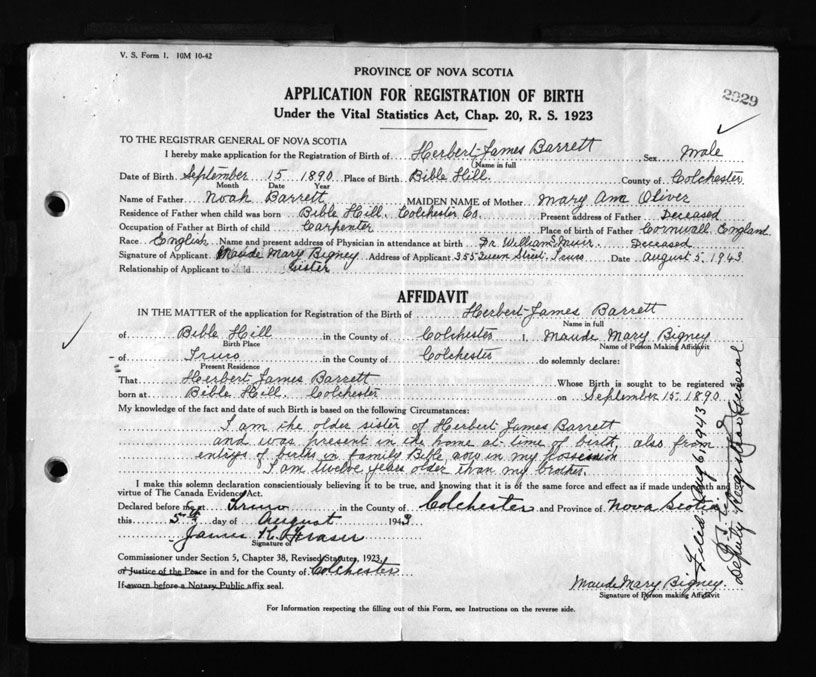 V. S. Form 1. 10M 10-42
2929
PROVINCE OF NOVA SCOTIA
APPLICATION FOR REGISTRATION OF BIRTH
Under the Vital Statistics Act, Chap. 20, R. S. 1923
TO THE REGISTRAR GENERAL OF NOVA SCOTIA
I hereby make application for the Registration of Birth of Herbert James Barrett Sex Male
Name in full
Date of Birth September 15 1890 Place of Birth Bible Hill County of Colchester
Month Date Year
Name of Father Noah Barrett MAIDEN NAME of Mother Mary Ann Oliver
Residence of Father when child was born Bible Hill. Colchester Co. Present address of Father Deceased
Occupation of Father at Birth of child Carpenter Place of birth of Father Cornwall England
Race English Name and present address of Physician in attendance at birth Dr. William S. Muir. Deceased
Signature of Applicant Maude Mary Bigney Address of Applicant 355 Queen Street, Truro Date August 5, 1943
Relationship of Applicant to Child Sister
AFFIDAVIT
IN THE MATTER of the application for Registration of the Birth of Herbert James Barrett
Name in full
of Bible Hill in the County of Colchester I, Maude Mary Bigney
Birth Place Name of Person Making Affidavit
of Truro in the County of Colchester do solemnly declare:
Present Residence
That Herbert James Barrett Whose Birth is sought to be registered was
born at Bible Hill. Colchester on September 15. 1890
My knowledge of the fact and date of such Birth is based on the following Circumstances:
I am the older sister of Herbert James Barrett
and was present in the home at time of birth, also from
entrys of births in family Bible now in my possession
I am twelve years older than my brother.
I make this solemn declaration conscientiously believing it to be true, and knowing that it is of the same force and effect as if made under oath and
virtue of The Canada Evidence Act.
Declared before me at Truro in the County of Colchester and Province of Nova Scotia
this 5th day of August 1943
James K. Fraser
Signature of
Commissioner under Section 5, Chapter 38, Revised Statutes, 1923,
or Justice of the Peace in and for the County of Colchester
If sworn before a Notary Public affix seal.
Maude Mary Bigney.
Signature of Person making Affidavit
For Information respecting the filling out of this Form, see Instructions on the reverse side.
Filed Aug 6 1943
Deputy Registrar General